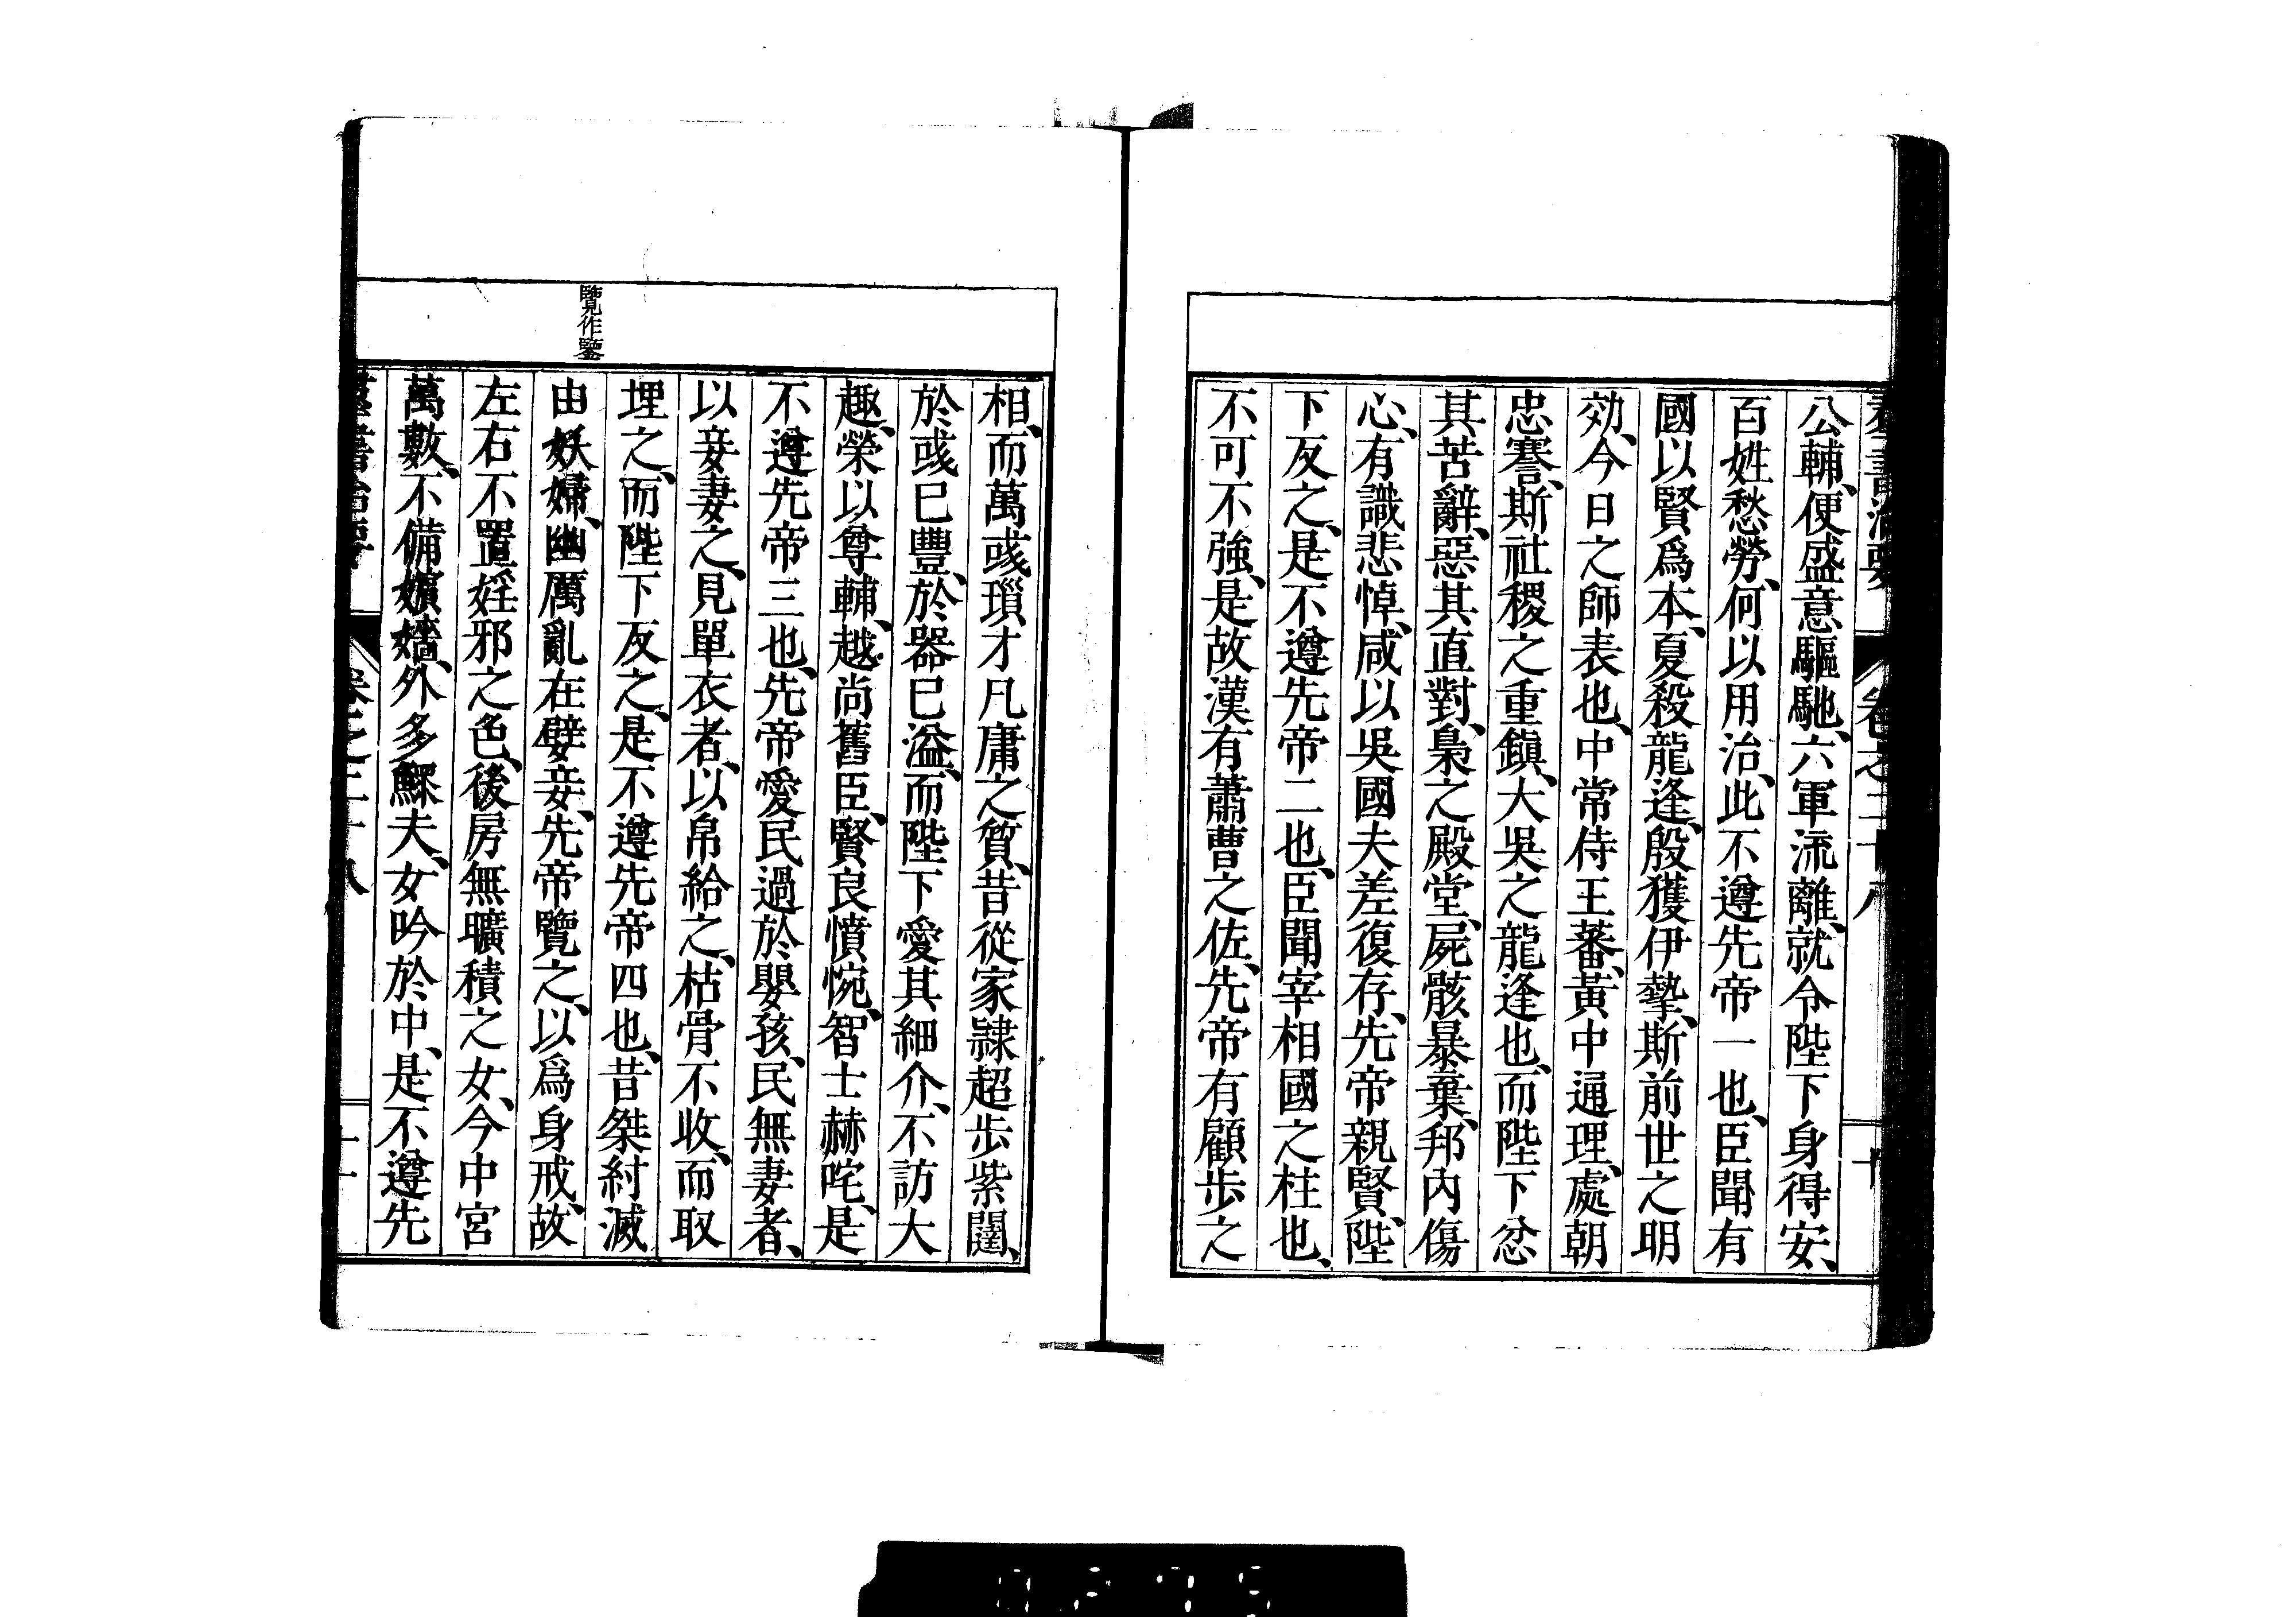 公輔、便盛意驅馳、六軍流離、就令陛下身得安、
百姓愁勞、何以用治、此不遵先帝一也、臣聞有
國以賢爲本、夏殺龍逢、殷獲伊摯、斯前世之明
効、今日之師表也、中常侍王蕃、黃中通理、處朝
忠謇、斯社稷之重鎭、大吳之龍逢也、而陛下忿
其苦辭、惡其直對、梟之殿堂、屍骸暴棄、邦內傷
心、有識悲悼、咸以吳國夫差復存、先帝親賢、陛
下反之、是不遵先帝二也、臣聞宰相國之柱也、
不可不強、是故漢有蕭曹之佐、先帝有顧步之
相、而萬彧瑣才凡庸之質、昔從家隷超步紫闥、
於彧已豐、於器已溢、而陛下愛其細介、不訪大
趣、榮以尊輔、越尚舊臣、賢良憤惋、智士赫咤、是
不遵先帝三也、先帝愛民過於嬰孩、民無妻者、
以妾妻之、見單衣者、以帛給之、枯骨不收、而取
埋之、而陛下反之、是不遵先帝四也、昔桀紂滅
由妖婦、幽厲亂在嬖妾、先帝覽之、以爲身戒、故
左右不置婬邪之色、後房無曠積之女、今中宮
萬數、不備嬪嬙、外多鰥夫、女吟於中、是不遵先
覽作鑒